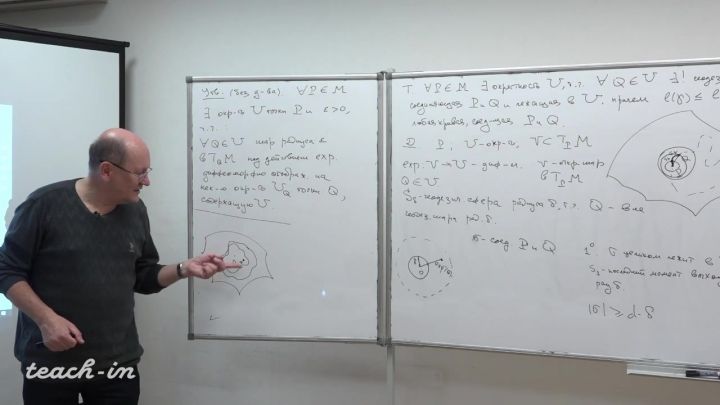 Утв. (без д-ва). ∀P∈M
∃ окр-ть U точки P и ε>0,
т.ч.:
∀Q∈U шар радиуса ε
в T_Q M под действием exp.
диффеоморфно отображ. на
нек-ю окр-ть U_Q точки Q,
содержащую U.
Т. ∀P∈M ∃ окрестность U, т.ч. ∀Q∈U ∃! геодез.
соединяющая P и Q и лежащая в U, причем l(γ) ≤ l
любая кривая, соед-щая P и Q.
D. P, U-окр-ть, V⊂T_P M
exp: V→U - диф-м. V-окр шар
Q∈U в T_P M
S_δ-геодезич. сфера радиуса δ, т.ч. Q - вне
геодез. шара рад. δ.
σ-соед. P и Q
1⁰. σ целиком лежит в
S_δ-последний момент выхо
рад δ
|σ| ≥ d-δ
teach-in